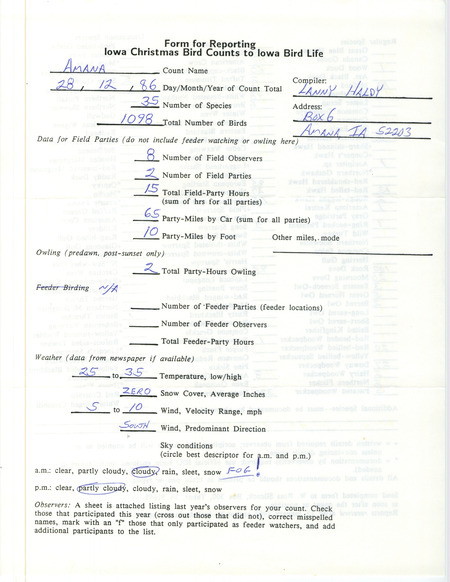 Form for Reporting
Iowa Christmas Bird Counts to Iowa Bird Life
AMANA Count Name
28, 12, 86 Day/Month/Year of Count Total
35 Number of Species
1098 Total Number of Birds
Compiler:
LANNY HALDY
Address:
BOX 6
AMANA IA 52203
Data for Field Parties (do not include feeder watching or owling here)
8 Number of Field Observers
2 Number of Field Parties
15 Total Field-Party Hours
(sum of hrs for all parties)
65 Party-Miles by Car (sum for all parties)
10 Party-Miles by Foot Other miles, mode
Owling (predawn, post-sunset only)
2 Total Party-Hours Owling
Feeder Birding N/A
Number of Feeder Parties (feeder locations)
Number of Feeder Observers
Total Feeder-Party Hours
Weather (data from newspaper if available)
25 to 35 Temperature, low/high
ZERO Snow Cover, Average Inches
5 to 10 Wind, Velocity Range, mph
SOUTH Wind, Predominant Direction
Sky conditions
(circle best descriptor for a.m. and p.m.)
a.m.: clear, partly cloudy, cloudy, rain, sleet, snow FOG!
p.m.: clear, partly cloudy, cloudy, rain, sleet, snow
Observers: A sheet is attached listing last year's observers for your count. Check
those that participated this year (cross out those that did not), correct misspelled
names, mark with an "f" those that only participated as feeder watchers, and add
additional participants to the list.